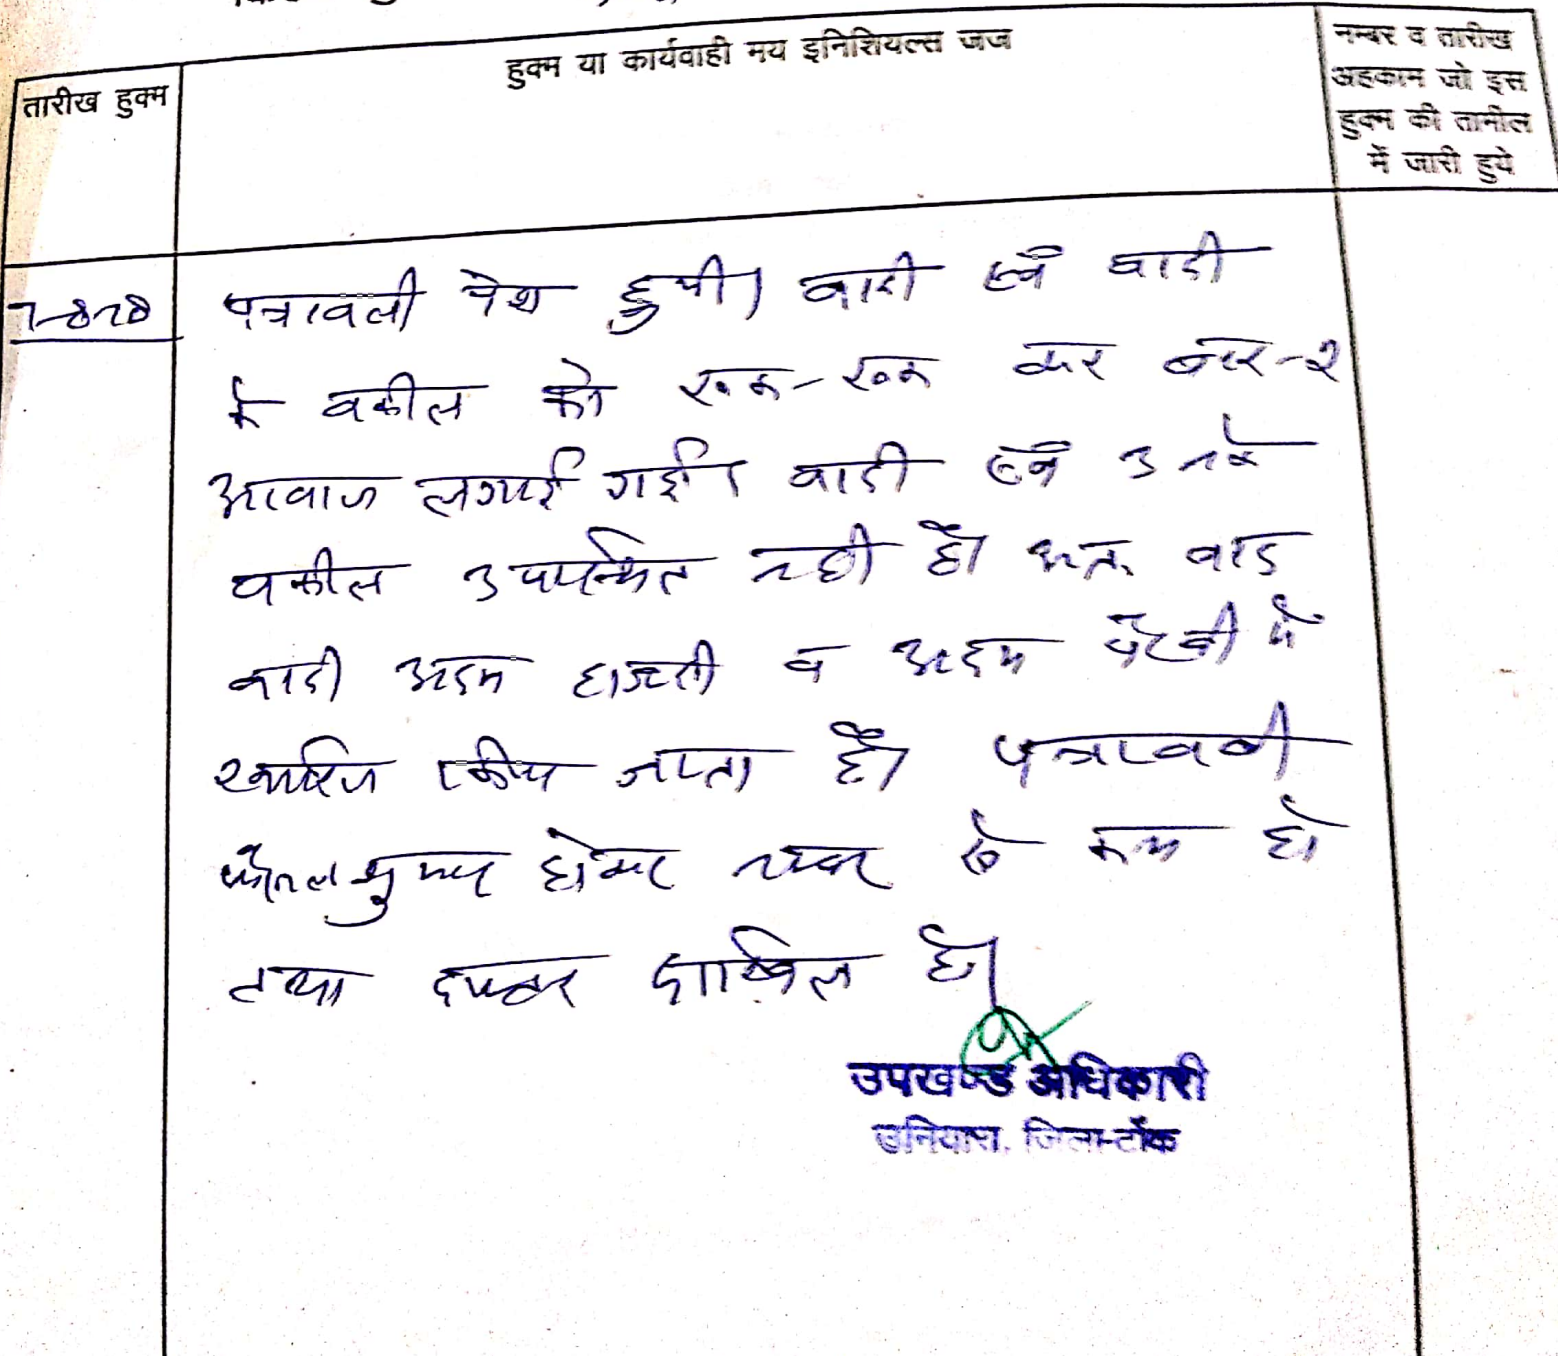 हुक्म या कार्यवाही मय इनिशियल्स जज
नम्बर व तारीख
अहकाम जो इस
हुक्म की तामील
में जारी हुये
तारीख हुक्म
पत्रावली पेश हुयी। वादी एवं वादी
के वकील को रूक-रूक कर बार-२
आवाज लगाई गई। वादी एवं उनके
वकील उपस्थित नही है। अतः वाद
वादी अदम हाजरी व अदम पैरवी में
खारिज किया जाता है। पत्रावली
फैसल शुमार होकर नम्बर से कम हो
तथा दफ्तर दाखिल हो।
उपखण्ड अधिकारी
उनियारा, जिला-टोंक